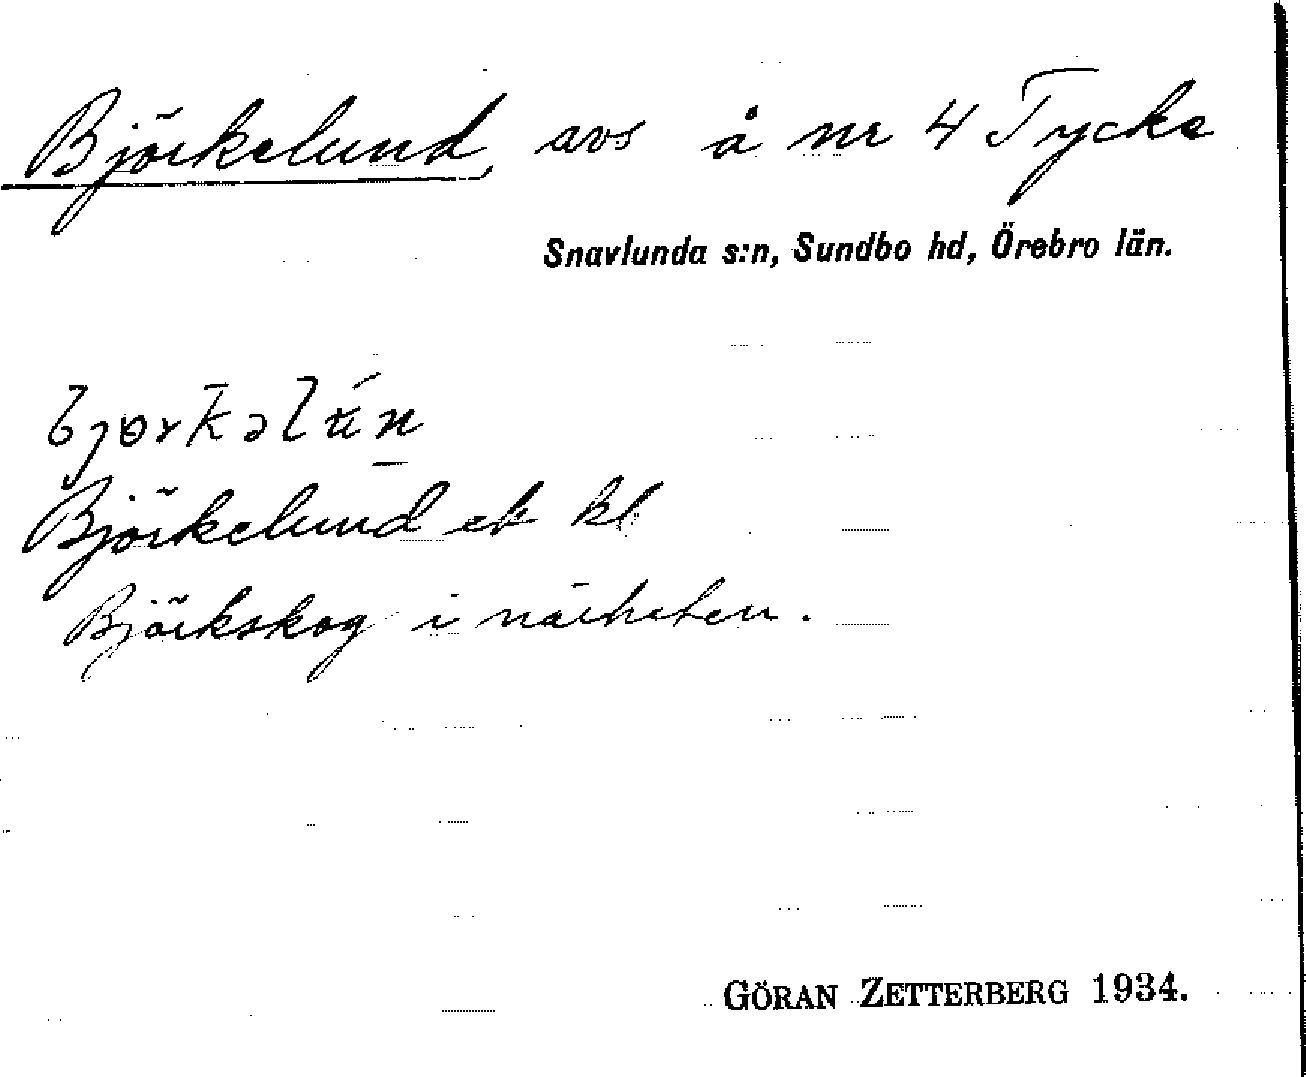 Björkelund, avs å nr 4 Tycke
Snavlunda s:n, Sundbo hd, Örebro län.
bjɵrkəlún
Björkelund ek kl
Björkskog i närheten.
GÖRAN ZETTERBERG 1934.